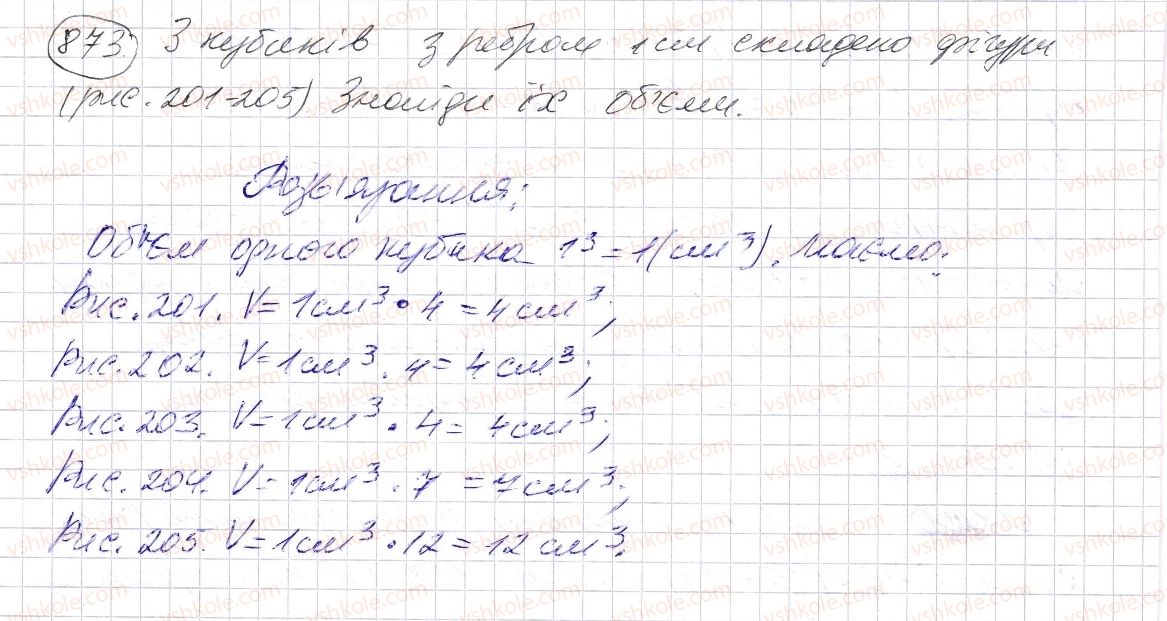 873. З кубиків з ребром 1 см складено фігури
(рис. 201-205) Знайди їх об'єми.
Розв'язання:
Об'єм одного кубика 1³ = 1(см³). Маємо:
Рис. 201. V = 1см³ • 4 = 4 см³;
Рис. 202. V = 1см³ • 4 = 4 см³;
Рис. 203. V = 1см³ • 4 = 4см³;
Рис. 204. V = 1см³ • 7 = 7см³;
Рис. 205. V = 1см³ • 12 = 12 см³.